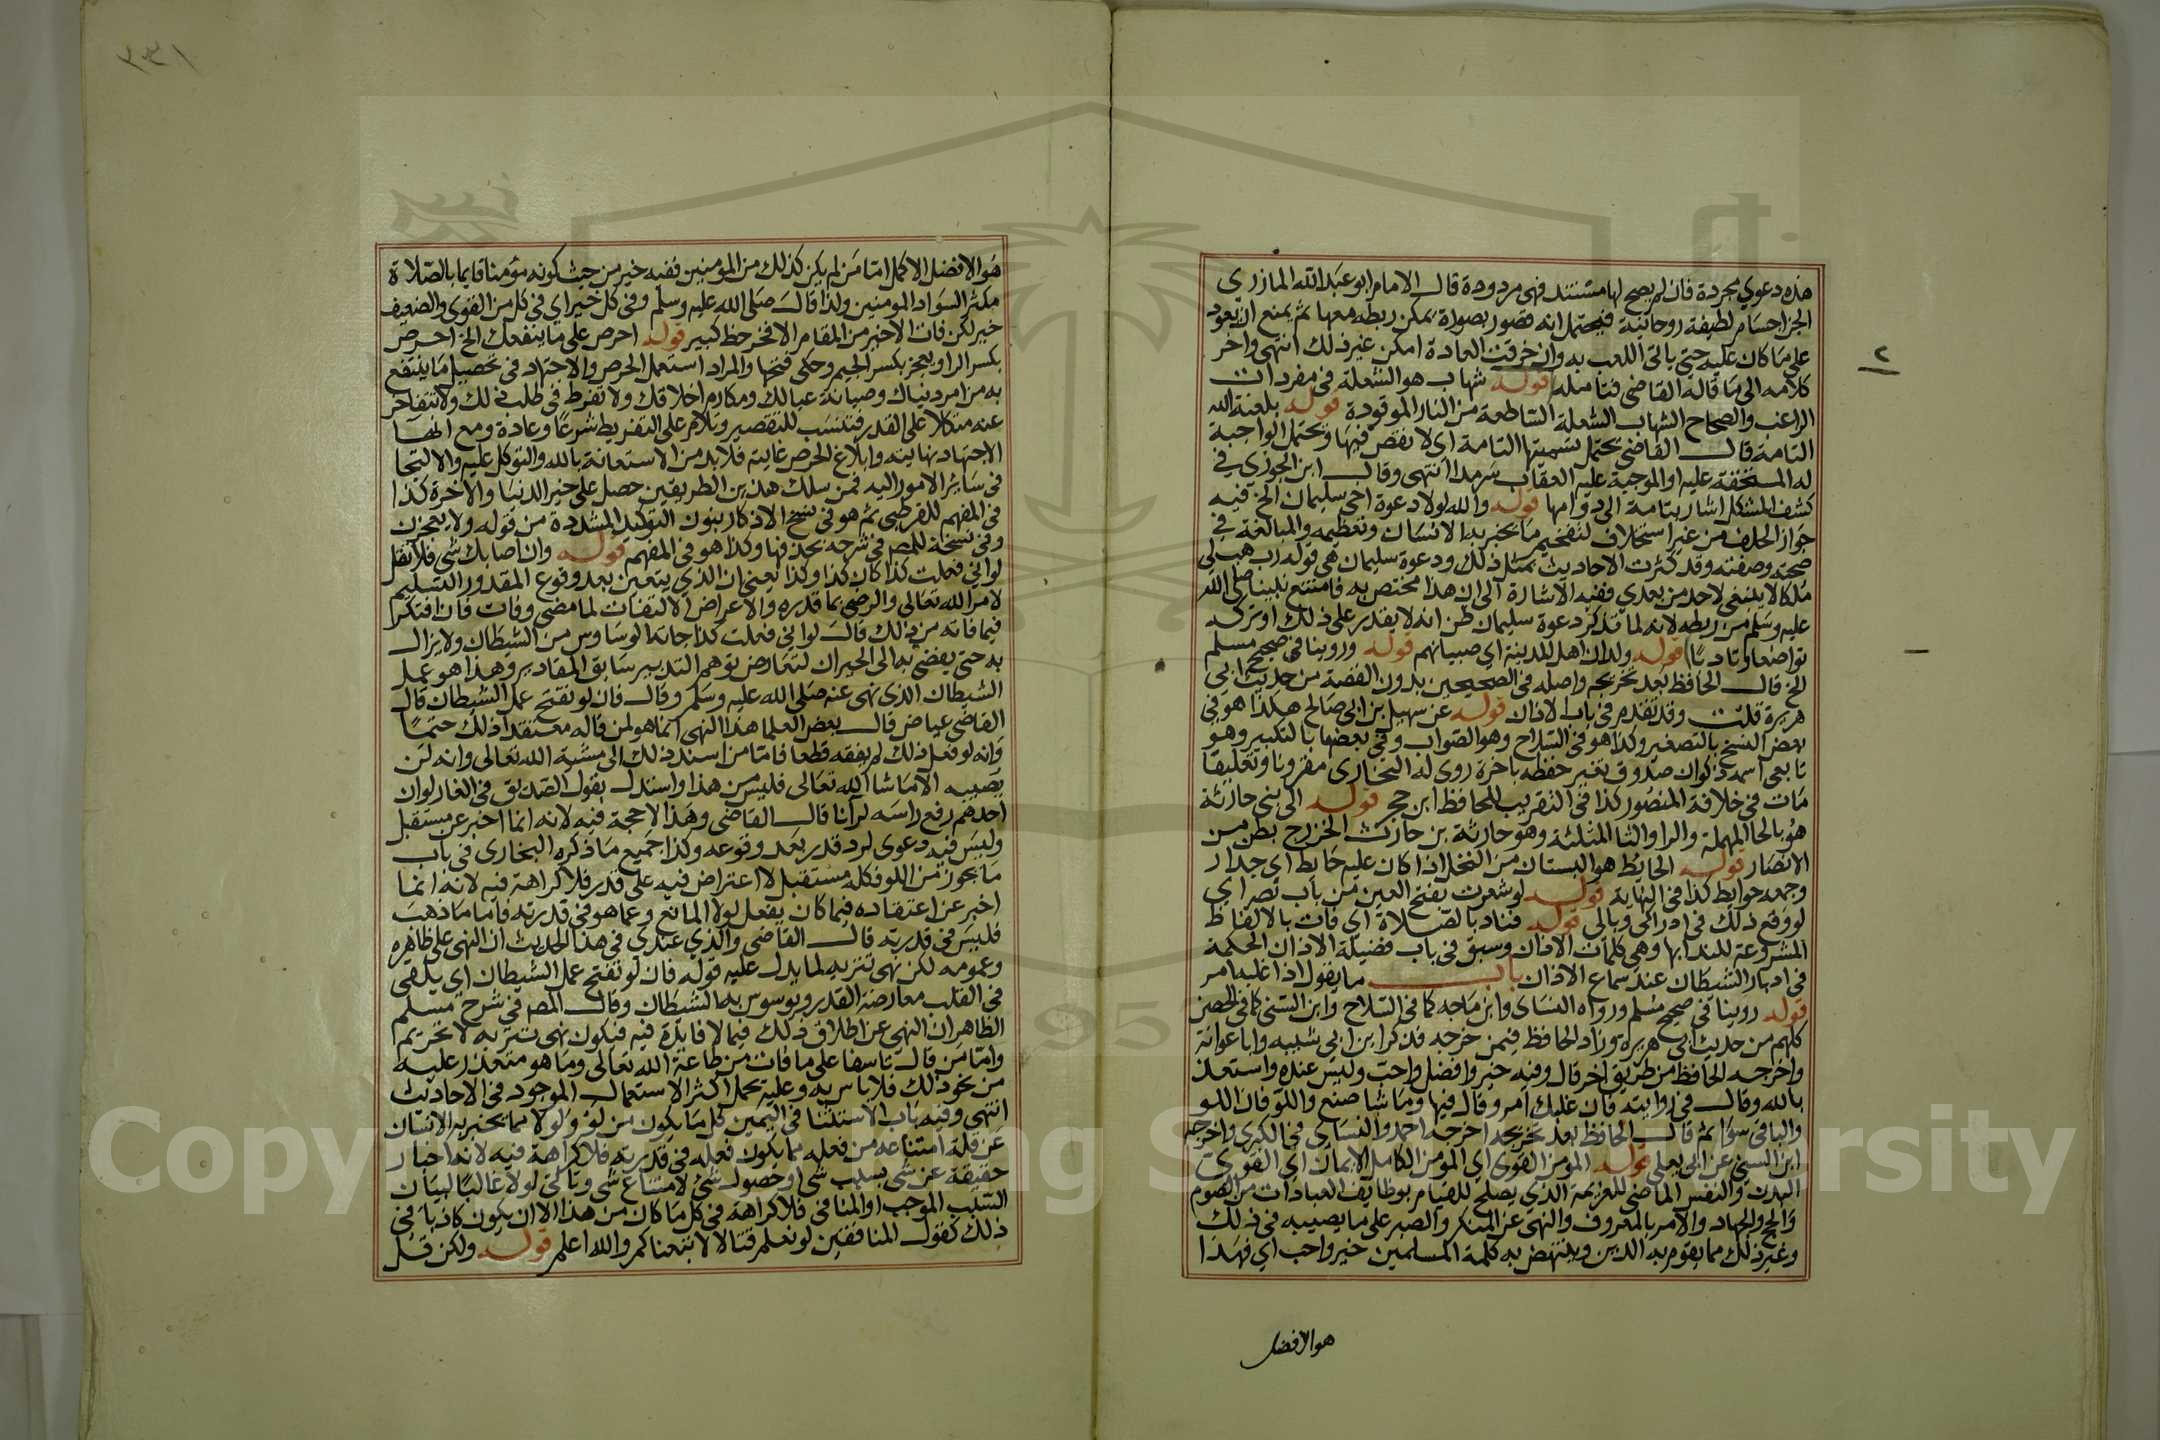 هذه دعوي مجردة فان لم يصح لها مستند فهي مردودة قال الامام ابو عبد الله المازري
الجن اجسام لطيفة روحانية فيحتمل انه تصور بصورة يمكن ربطه معها ثم يمنع ان يعود
علي ما كان عليه حتي ياتي اللعب به وان خرقت العادة امكن غير ذلك انتهى واخر
كلامه الى ما قاله القاضي فتامله قوله شهاب هو الشعلة في مفردات
الراغب والصحاح الشهاب الشعلة الساطعة من النار الموقودة قوله بلعنة الله
التامة قال القاضي يحتمل تسميتها التامة اي لا نقص فيها ويحتمل الواجبة
له المستحقة عليه او الموجبة عليه العقاب سرمدا انتهى وقال ابن الجوزي في
كشف المشكل اشار بتامة الى دوامها قوله والله لولا دعوة اخي سليمان الخ فيه
جواز الحلف من غير استحلاف لتفخيم ما يخبر به الانسان وتعظيمه والمبالغة في
صحته وصفته وقد كثرت الاحاديث بمثل ذلك ودعوة سليمان هي قوله رب هب لي
ملكا لا ينبغي لاحد من بعدي ففيه الاشارة الى ان هذا مختص به فامتنع نبينا صلى الله
عليه وسلم من ربطه لانه لما تذكر دعوة سليمان ظن انه لا يقدر على ذلك او تركه
تواضعا وتادبا قوله ولدان اهل المدينة اي صبيانهم قوله وروينا في صحيح مسلم
الخ قال الحافظ بعد تخريجه واصله في الصحيحين بدون القصة من حديث ابي
هريرة قلت وقد تقدم في باب الاذان قوله عن سهيل بن ابي صالح هكذا هو في
بعض النسخ بالتصغير وكذا هو في السلاح وهو الصواب وفي بعضها بالتكبير وهو
تابعي اسمه ذكوان صدوق تغير حفظه باخرة روى له البخاري مقرونا وتعليقا
مات في خلافة المنصور كذا في التقريب للحافظ ابن حجر قوله الى بني حارثة
هو بالحا المهملة والراو والثا المثلثة وهو حارثة بن حارث الخزرج بطن من
الانصار قوله الحايط هو البستان من النخل اذا كان عليه حايط اي جدار
وجمعه حوايط كذا في النهاية قوله لو شعرت بفتح العين من باب نصر اي
لو وقع ذلك في ادراكي وبالي قوله فناد بالصلاة اي فات بالالفاظ
المشروعة للندا بها وهي كلمات الاذان وسبق في باب فضيلة الاذان الحكمة
في ادبار الشيطان عند سماع الاذان باب ما يقول اذا غلبه امر
قوله روينا في صحيح مسلم ورواه النساى وابن ماجه كما في السلاح وابن السني كما في الحصن
كلهم من حديث ابي هريرة وزاد الحافظ فيمن خرجه فذكر ابن ابي شيبه وابا عوانة
واخرجه الحافظ من طريق اخر قال وفيه خير وافضل واحب وليس عنده واستعن
بالله وقال في روايته فان غلبك امر وقال فيها وما شا صنع واللو فان اللو
والباقي سوا ثم قال الحافظ بعد تخريجه اخرجه احمد والنساى في الكبرى واخرجه
ابن السني عن ابي يعلي قوله المومن القوى اي المومن الكامل الايمان اي القوي
البدن والنفس الماضي للعزيمة الذي يصلح للقيام بوظايف العبادات من الصوم
والحج والجهاد والامر بالمعروف والنهي عن المنكر والصبر على ما يصيبه في ذلك
وغير ذلك مما يقوم به الدين وينتهض به كلمة المسلمين خير واحب اي فهذا
هو الافضل
٣٣١
هو الافضل الاكمل امتا من لم يكن كذلك من المومنين ففيه خير من حيث كونه مومنا قايما بالصلاة
مكثر السواد المومنين ولذا قال صلى الله عليه وسلم وفي كل خير اي في كل من القوي والضعيف
خير لكن فات الاخير من المقام الافخر حظ كبير قوله احرص على ما ينفعك الخ احرص
بكسر الراو يعجز بكسر الجيم وحكي فتحها والمراد استعمل الحرص والاجتهاد في تحصيل ما ينتفع
به من امر دنياك وصيانة عيالك ومكارم اخلاقك ولا تفرط في طلب ذلك ولا تتفاخر
عنه متكلا على القدر فتنسب للتقصير وتلام على التفريط شرعا وعادة ومع انها
الاجتهاد نهايته وابلاغ الحرص غايته فلا بد من الاستعانة بالله والتوكل عليه والالتجا
في ساير الامور اليه فمن سلك هذين الطريقين حصل علي خير الدنيا والاخرة كذا
في المفهم للقرطبي ثم هو في نسخ الاذكار بنون التوكيد المشددة من قوله ولا يعجزن
وفي نسخة للمص في شرحه بحذفها وكذا هو في المفهم قوله وان اصابك شي فلا تقل
لو اني فعلت كذا كان كذا وكذا يعني ان الذي يتعين بعد وقوع المقدور التسليم
لامر الله تعالى والرضى بما قدره والاعراض الالتفات لما مضى وفات فان افتكر
فيما فاته من ذلك قال لو اني فعلت كذا جاته الوساوس من الشيطان ولا يزال
به حتي يفضي به الى الخسران لتعارض توهم التدبير سابق المقادير وهذا هو عمل
الشيطان الذي نهى عنه صلى الله عليه وسلم وقال فان لو تفتح عمل الشيطان قال
القاضي عياض قال بعض العلما هذا النهى انما هو لمن قاله معتقدا ذلك حتما
وانه لو فعل ذلك لم يفقه قطعا فامتا من اسند ذلك الى مشية الله تعالى وانه لن
يصيبه الا ما شا الله تعالى فليس من هذا واستدل بقول الصديق في الغار لو ان
احدهم رفع راسه لرآنا قال القاضي وهذا لا حجة فيه لانه انما اخبر عن مستقبل
وليس فيه دعوى لرد قدر بعد وقوعه وكذا جميع ما ذكره البخارى في باب
ما يجوز من اللو فكله مستقبل لا اعتراض فيه على قدر فلا كراهة فيه لانه انما
اخبر عن اعتقاده فيما كان يفعل لولا المانع وعما هو في قدرته فاما ما ذهب
فليس في قدرته قال القاضي والذي عندي في هذا الحديث ان النهى على ظاهره
وعمومه لكن نهى تنزيه لما يدل عليه قوله فان لو تفتح عمل الشيطان اي يلقي
في القلب معارضة القدر ويوسوس به الشيطان وقال المص في شرح مسلم
الظاهر ان النهي عن اطلاق ذلك فيما لا فايدة فيه فيكون نهي تنزيه لا تحريم
وامتا من قال تاسفا علي ما فات من طاعة الله تعالى وما هو متعذر عليه
من نحو ذلك فلا باس به وعليه يحمل اكثر الاستعمال الموجود في الاحاديث
انتهى وفيه باب الاستثنا في اليمين كل ما يكون من لو ولولا مما يخبر به الانسان
عن قلة امتناعه من فعله مما يكون فعله في قدرته فلا كراهة فيه لانه اخبار
حقيقة عن شي بسبب شي او حصول شي لامتناع شي وتاتي لولا غالبا لبيان
السبب الموجب او المنافي فلا كراهة في كل ما كان من هذا الا ان يكون كاذبا في
ذلك كقول المنافقين لو نعلم قتالا لا تبعناكم والله اعلم قوله ولكن قل
٢